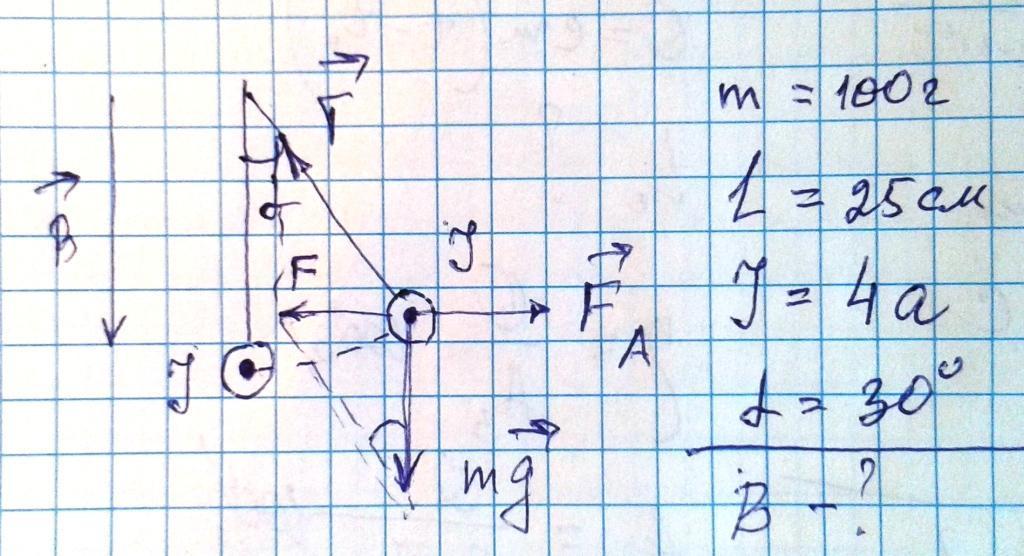 T
B
α
F
J
J
F
A
mg
m = 100г
L = 25см
J = 4а
α = 30°
B - ?